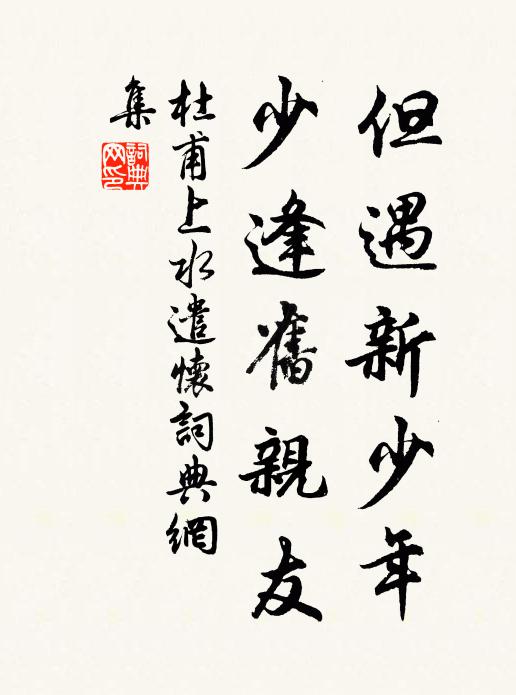 但遇新少年
少逢舊親友
杜甫上水遣懷詞典網
集
詞典
网印